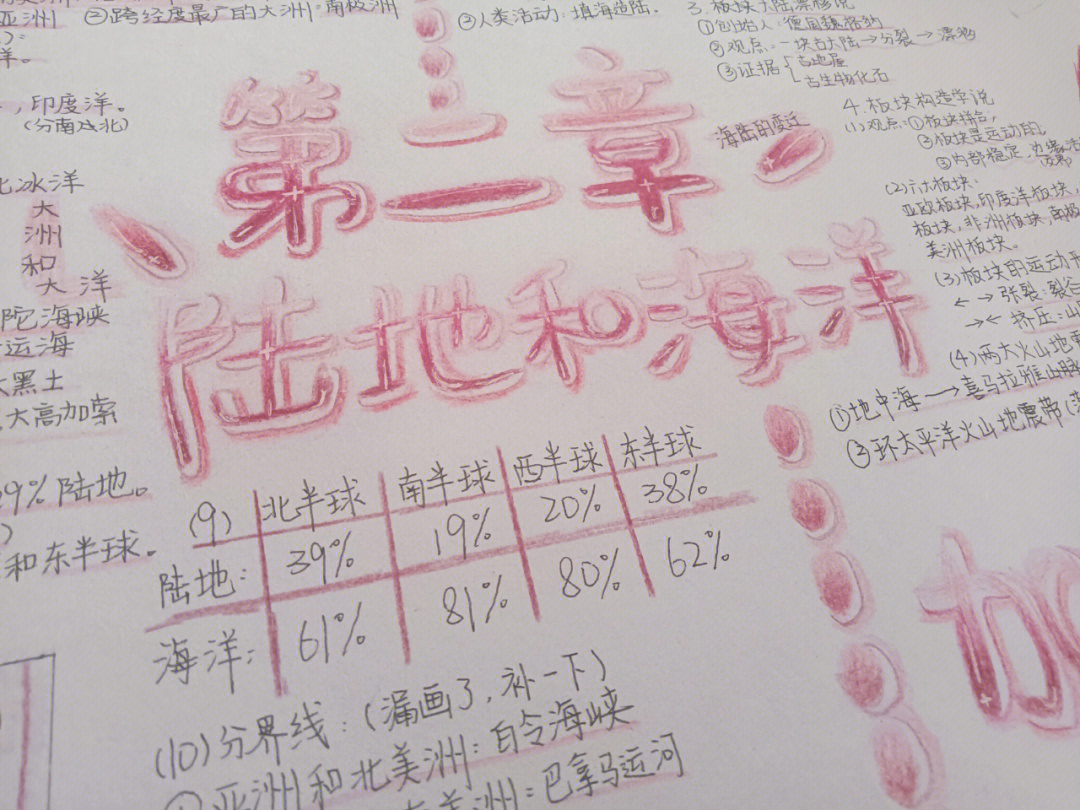 亚洲 ②跨经度最广的大洲:南极洲
洋。
,印度洋。
(分南及北)
北冰洋
大
洲
和
大洋
陀海峡
运海
黑土
大高加索
39%陆地。
和东半球。
③人类活动:填海造陆.
第二章
陆地和海洋
海陆的变迁
3.板块大陆漂移说
①创始人:德国魏格纳
②观点:一块古大陆→分裂→漂移
③证据 古地层
古生物化石
4.板块构造学说
(1)观点:①板块拼合,
②板块是运动的,
③内部稳定,边缘活
(2)六大板块:
亚欧板块,印度洋板块,
板块,非洲板块,南极
美洲板块。
(3)板块的运动
←→张裂:裂谷
→←挤压:山
(4)两大火山地震
①地中海→喜马拉雅山脉
③环太平洋火山地震带(
(9) 北半球 南半球 西半球 东半球
陆地: 39% 19% 20% 38%
海洋: 61% 81% 80% 62%
(10)分界线:(漏画了,补一下)
①亚洲和北美洲:白令海峡
南美洲:巴拿马运河
加